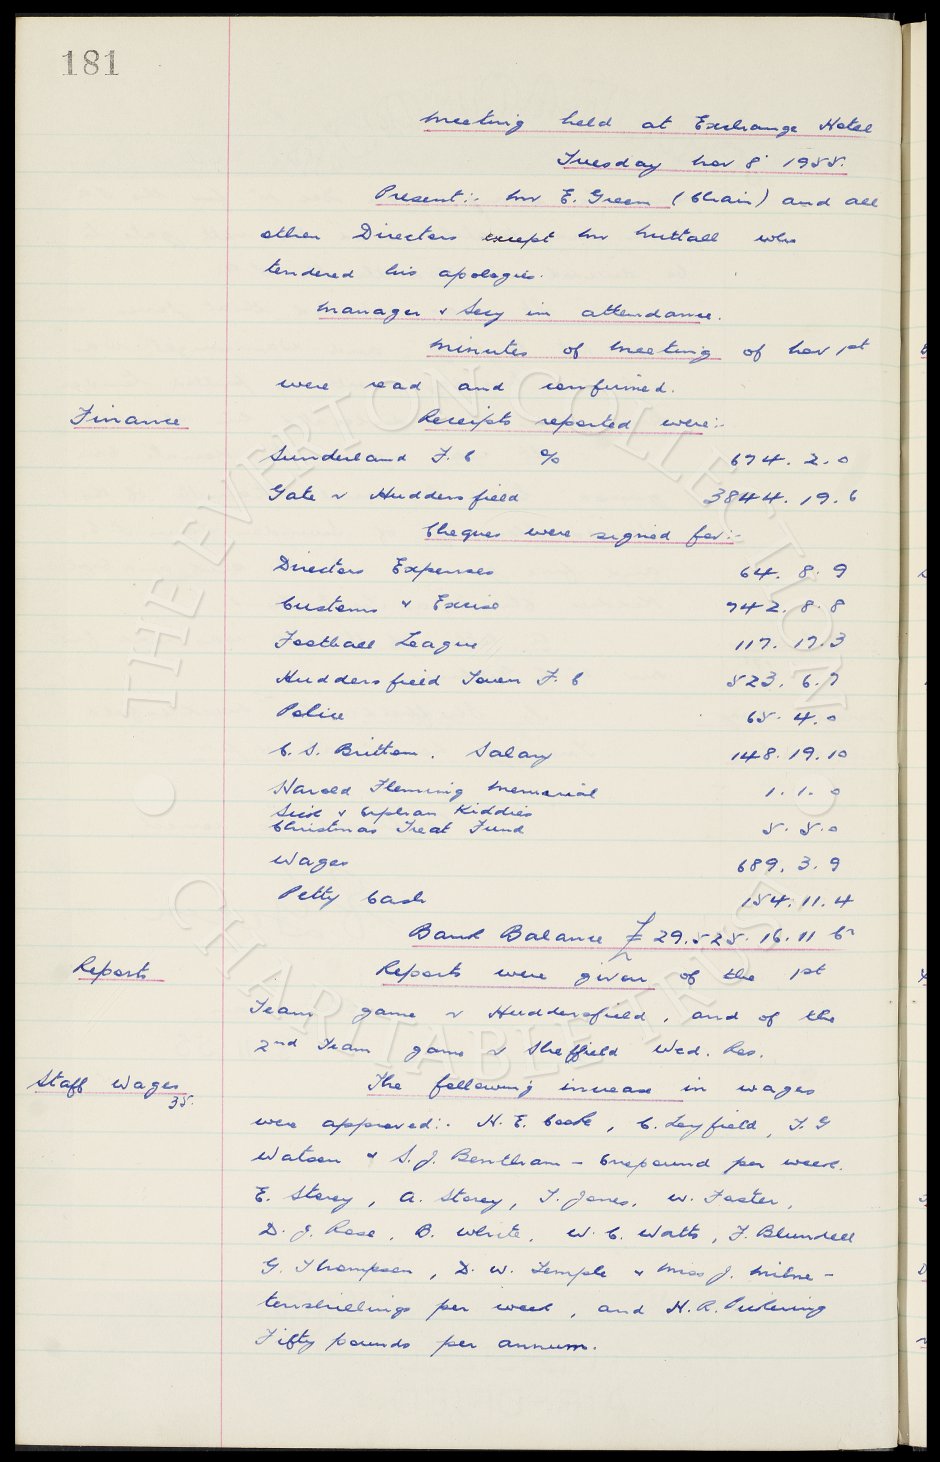 181
Meeting held at Exchange Hotel
Tuesday Nov 8th 1955.
Present:- Mr E. Green (Chair) and all
other Directors except Mr Nuttall who
tendered his apologies.
Manager & Secy in attendance.
Minutes of Meeting of Nov 1st
were read and confirmed.
Finance
Receipts reported were:-
Sunderland F.C % 674. 2. 0
Gate v Huddersfield 3844. 19. 6
Cheques were signed for:-
Directors Expenses 64. 8. 9
Customs & Excise 742. 8. 8
Football League 117. 17. 3
Huddersfield Town F. C 523. 6. 7
Police 65. 4. 0
C. S. Britton. Salary 148. 19. 10
Harold Fleming Memorial 1. 1. 0
Sick & Orphan Kiddies
Christmas Treat Fund 5. 5. 0
Wages 689. 3. 9
Petty Cash 154. 11. 4
Bank Balance £ 29.525. 16. 11 Cr
Reports
Reports were given of the 1st
Team game v Huddersfield, and of the
2nd Team game v Sheffield Wed. Res.
Staff Wages
35.
The following increase in wages
were approved:- H. E. Cooke, C. Leyfield, T. G
Watson & S. J. Bentham - Onepound per week.
E. Storey, A. Storey, T. Jones, W. Foster,
D. J. Rose, B. White, W. C. Watts, F. Blundell
G. Thompson, D. W. Temple & Miss J. Milne -
tenshillings per week, and H. R. Pickering
Fifty pounds per annum.
THE EVERTON COLLECTION
CHARITABLE TRUST